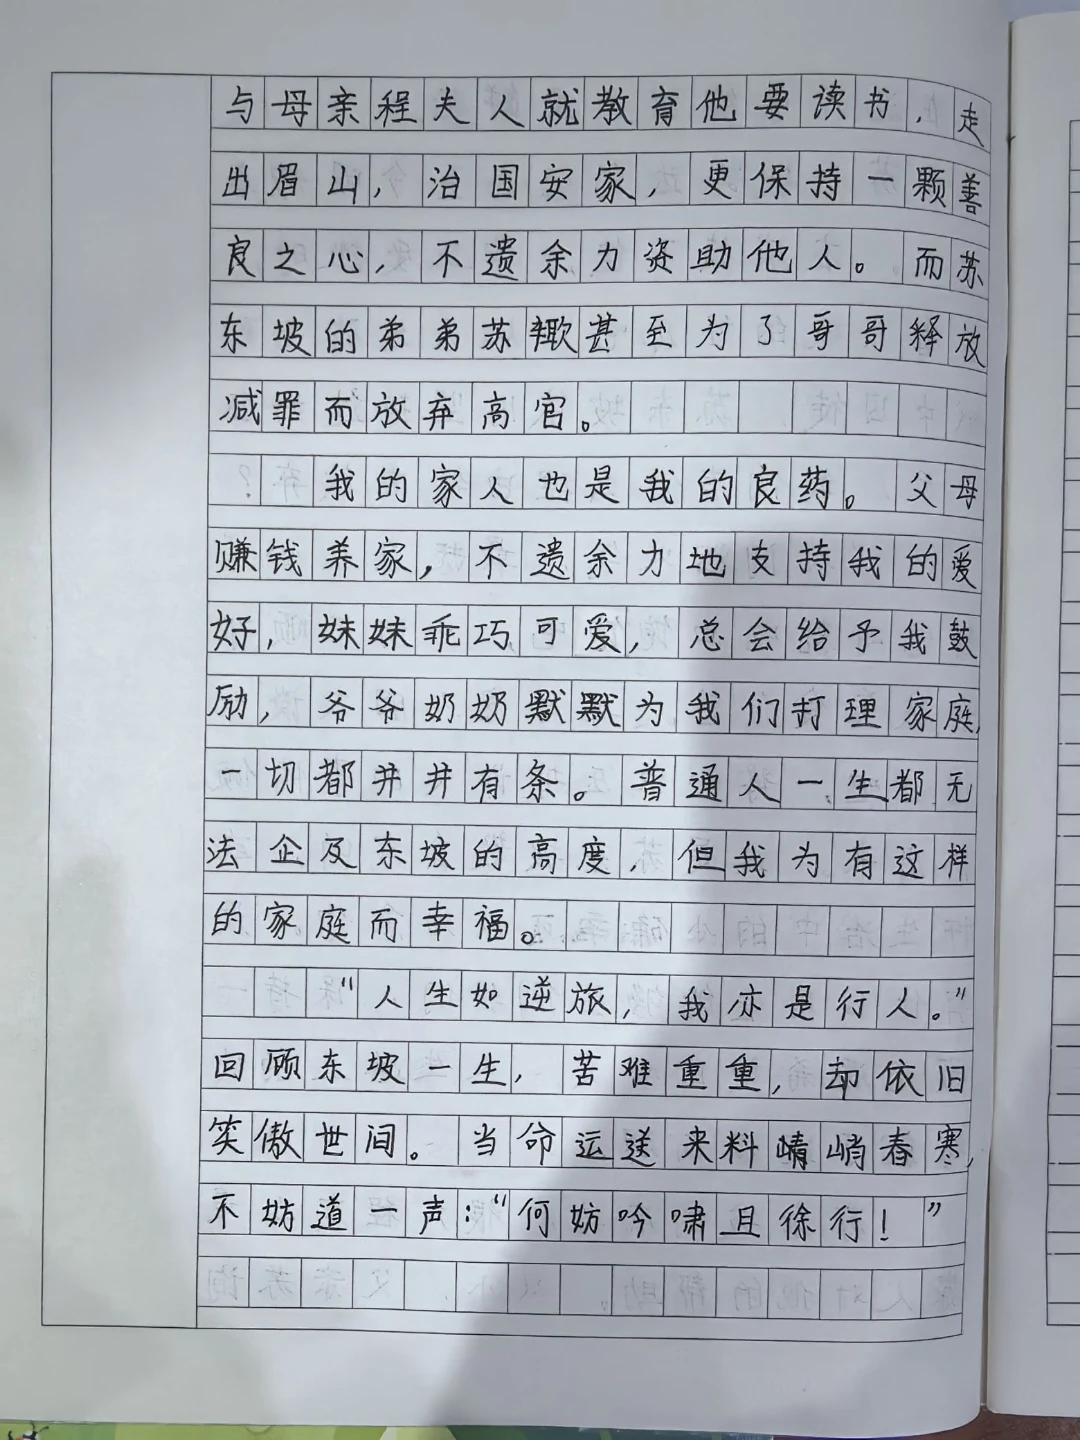 与母亲程夫人就教育他要读书，走
出眉山，治国安家，更保持一颗善
良之心，不遗余力资助他人。而苏
东坡的弟弟苏辙甚至为了哥哥释放
减罪而放弃高官。
我的家人也是我的良药。父母
赚钱养家，不遗余力地支持我的爱
好，妹妹乖巧可爱，总会给予我鼓
励，爷爷奶奶默默为我们打理家庭，
一切都井井有条。普通人一生都无
法企及东坡的高度，但我为有这样
的家庭而幸福。
“人生如逆旅，我亦是行人。”
回顾东坡一生，苦难重重，却依旧
笑傲世间。当命运送来料峭春寒，
不妨道一声：“何妨吟啸且徐行！”